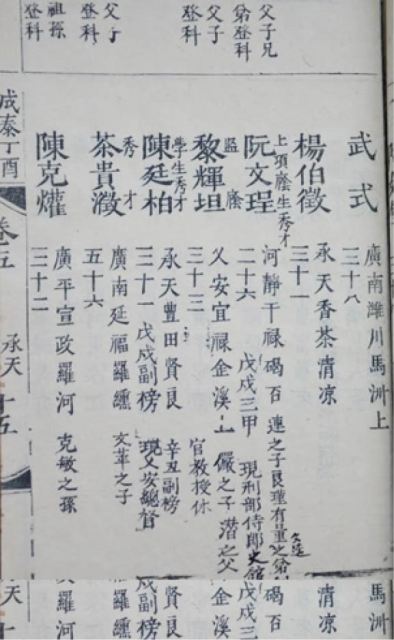 父子兄
弟登科
父子
登科
父子
登科
祖孫
登科
武式
廣南濰川馬洲上
三十八
楊伯徵
承天香茶清凉
三十一
上項廕生秀才
阮文珵
河靜干禄碣百 連之子良瑾有量之弟
二十六 戊戌三甲 現刑部侍郎
監廕
黎輝坦
乂安宜禄金溪上 儼之子 潜之父
三十三 官教授休
學生秀才
陳廷柏
承天豊田賢良 辛丑副榜
三十一 戊戌副榜 現乂安總督
秀才
茶貴瀓
廣南延福羅纏 文華之子
五十六
陳克爟
廣平宣政羅河 克敏之孫
三十二
成泰丁酉
卷五
承天
十五
馬洲上
清凉
碣百
戊戌三
金溪
賢良
戊戌副榜
羅纏
羅河
天